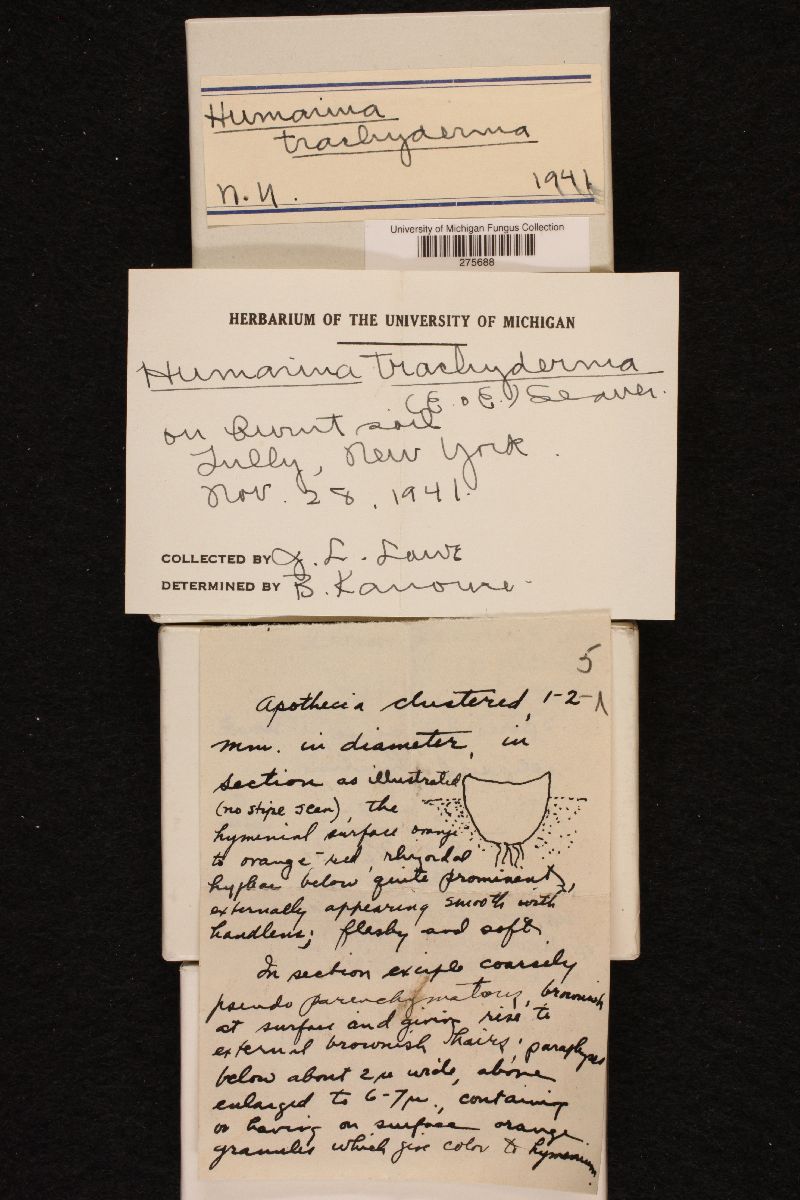 Humarina
trachyderma
N.Y. 1941
University of Michigan Fungus Collection
275688
HERBARIUM OF THE UNIVERSITY OF MICHIGAN
Humarina trachyderma
(E. & E.) Seaver.
on Burnt soil
Tully, New York.
Nov. 28, 1941.
COLLECTED BY J. L. Lowe
DETERMINED BY B. Kanouse
5
Apothecia clustered, 1-2-
mm. in diameter, in
section as illustrated
(no stipe seen), the
hymenial surface orange
to orange-red, rhizoidal
hyphae below quite prominent,
externally appearing smooth with
handlens; fleshy and soft.
In section exciple coarsely
pseudo parenchymatous, brownish
at surface and giving rise to
external brownish hairs; paraphyses
below about 2µ wide, above
enlarged to 6-7µ., containing
or having on surface orange
granules which give color to hymenium.